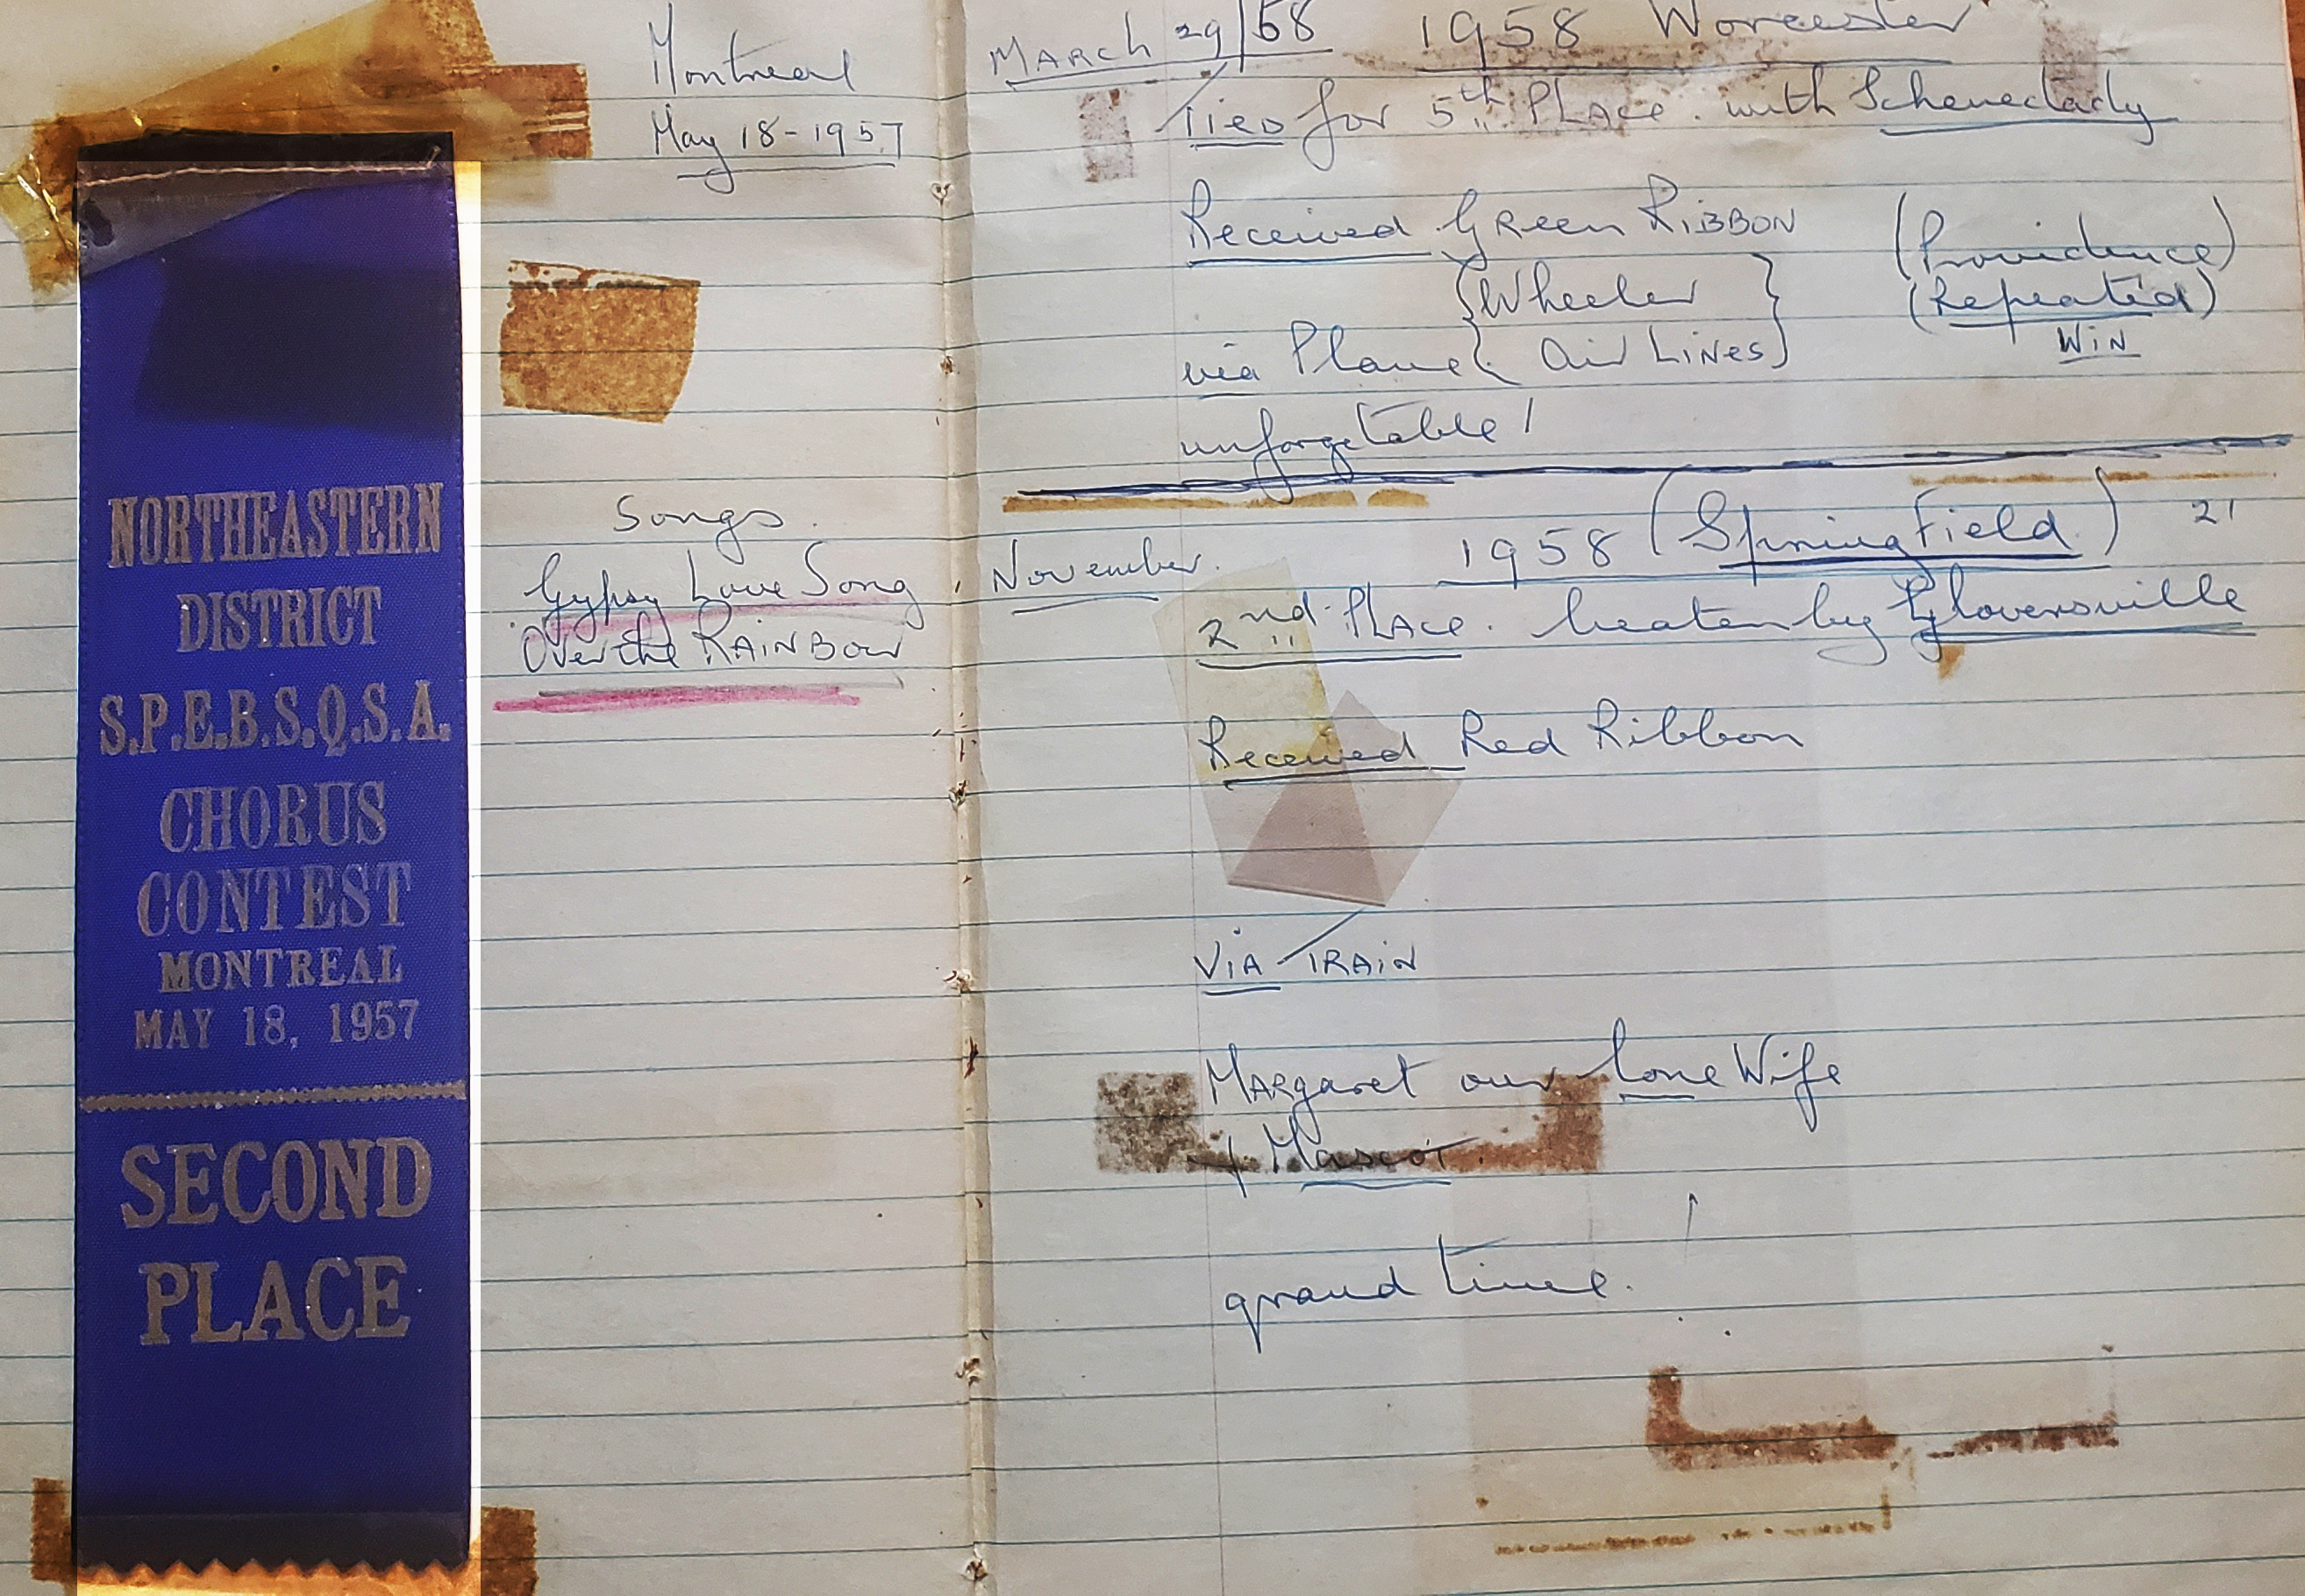 NORTHEASTERN
DISTRICT
S.P.E.B.S.Q.S.A.
CHORUS
CONTEST
MONTREAL
MAY 18, 1957
SECOND
PLACE
Montreal
May 18-1957
Songs.
Gypsy Love Song,
Over the RAINBOW
MARCH 29/58 1958 Worcester
Tied for 5th PLAce. with Schenectady
Received GReen RiBBON
(Providence)
{Wheeler}
(Repeated)
via Plane {Air LiNes}
WiN
unforgetable!
November. 1958 (SpringField) 21
2nd PLAce. beaten by Gloversville
Received Red Ribbon
ViA TRAiN
MARgaret our lone Wife
& Mascot.
grand time.!